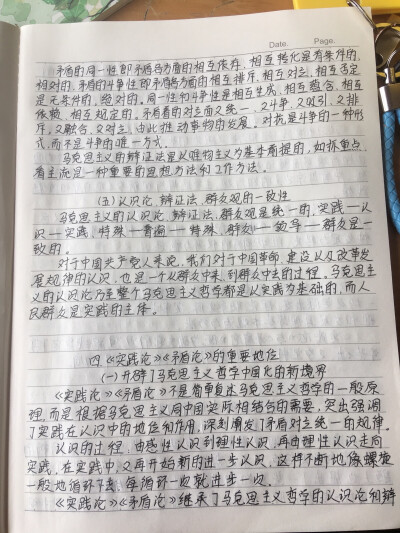 Date.    Page.
矛盾的同一性即矛盾各方面的相互依存、相互转化是有条件的、
相对的。矛盾的斗争性即矛盾各方面的相互排斥、相互对立、相互否定
是无条件的、绝对的。同一性和斗争性是相互生成、相互蕴含、相互
依赖、相互规定的。矛盾着的对立面又统一、又斗争、又吸引、又排
斥、又融合、又对立，由此推动事物的发展。对抗是斗争的一种形
式，而不是斗争的唯一方式。
马克思主义的辩证法是以唯物主义为基本前提的，如抓重点、
看主流是一种重要的思想方法和工作方法。
（五）认识论、辩证法、群众观的一致性
马克思主义的认识论、辩证法、群众观是统一的，实践—认
识—实践，特殊—普遍—特殊，群众—领导—群众是一
致的。
对于中国共产党人来说，我们对于中国革命、建设以及改革发
展规律的认识，也是一个从群众中来，到群众中去的过程。马克思主
义的认识论乃至整个马克思主义哲学都是以实践为基础的，而人
民群众是实践的主体。
四《实践论》《矛盾论》的重要地位
（一）开辟了马克思主义哲学中国化的新境界
《实践论》《矛盾论》不是简单复述马克思主义哲学的一般原
理，而是根据马克思主义同中国实际相结合的需要，突出强调
了实践在认识中的地位和作用，深刻阐发了矛盾对立统一的规律。
认识的过程，由感性认识到理性认识，再由理性认识走向
实践，在实践中，又再开始新的进一步认识，这样不断地像螺旋
一般地循环下去，每循环一次就进步一次。
《实践论》《矛盾论》继承了马克思主义哲学的认识论和辩